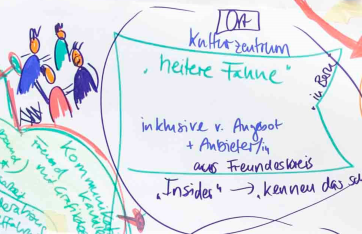 Ort
Kulturzentrum
"heitere Fahne"
in Bern
inklusive v. Angebot
+ Anbieter/in
aus Freundeskreis
"Insider" → kennen das
Kommunikation
und Grafik